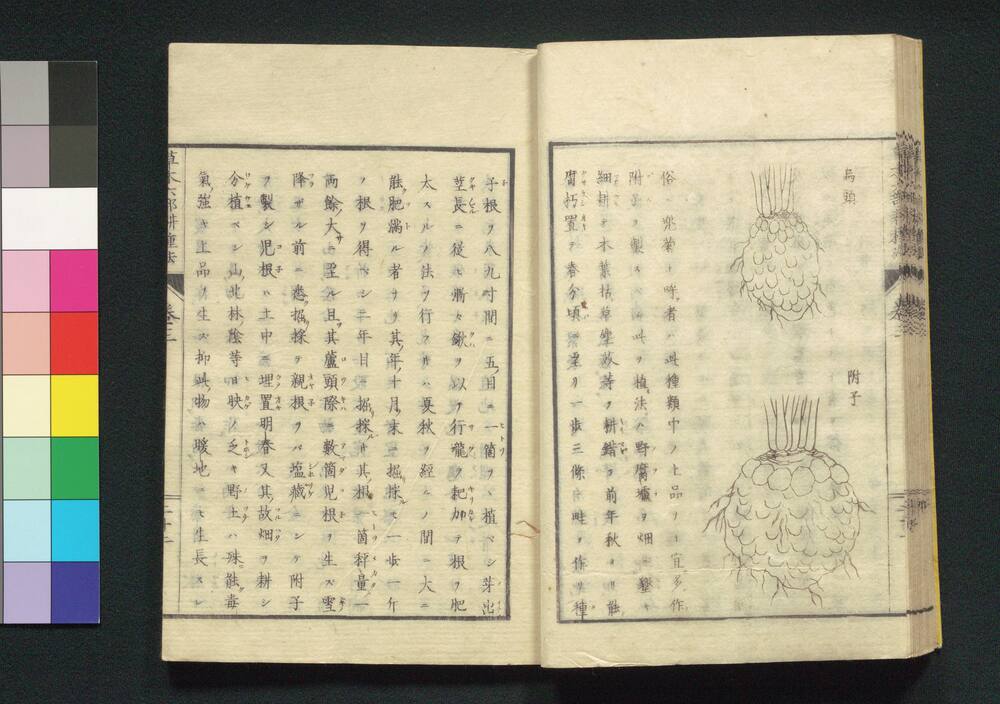 烏頭
附子
俗ニ兜菊ト呼者ハ此種類中ノ上品ナリ宜多作
附子ヲ製スベシ此ヲ植ル法ハ野腐壤ノ畑ニ墾キ
細耕テ木葉枯草塵芥等ヲ耕錯テ前年秋ヨリ能
腐朽置テ春分頃ニ至リ一歩三條ノ畦ヲ作リ種
子根ヲ八九寸間ニ五目ニ一箇ヲ植ベシ芽出
莖長ニ從ヒ漸々鍬ヲ以テ行龍ヲ起加テ根ヲ肥
太スルノ法ヲ行フトキハ夏秋ヲ經ルノ間ニ大ニ
能肥滿ル者ナリ其年十月末ニ掘採モ一歩一斤
ノ根ヲ得ベシ二年目ニ掘採ハ其根一箇秤量一
兩餘ノ大サニ至ル且其蘆頭際ニ數箇児根ヲ生ズ雪
降ザル前ニ悉掘採テ親根ヲバ塩藏ニシテ附子
ヲ製シ児根ハ土中ニ埋置明春又其故畑ヲ耕シ
分植ベシ山北林陰等日映ノ乏キ野土ハ殊能毒
氣強キ上品ヲ生ズ抑此物ハ暖地ニハ生長スレ
草木六部耕種法